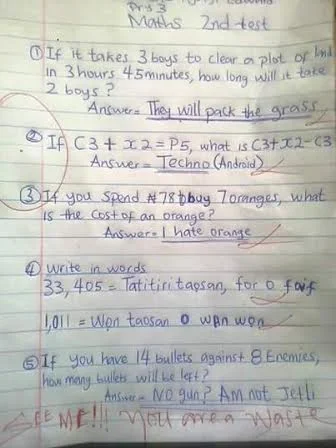 Prs 3
Maths 2nd test
① If it takes 3 boys to clear a plot of land
in 3 hours 45 minutes, how long will it take
2 boys?
Answer = They will pack the grass
② If C3 + x2 = P5, what is C3+x2-C3
Answer = Techno (Android)
③ If you spend ₦78 to buy 7 oranges, what
is the cost of an orange?
Answer = I hate orange
④ Write in words
33,405 = Tatitiri taosan, for o faif
1,011 = Won taosan o wan won
⑤ If you have 14 bullets against 8 Enemies,
how many bullets will be left?
Answer = No gun? Am not Jetli
SEE ME!!! You are a waste